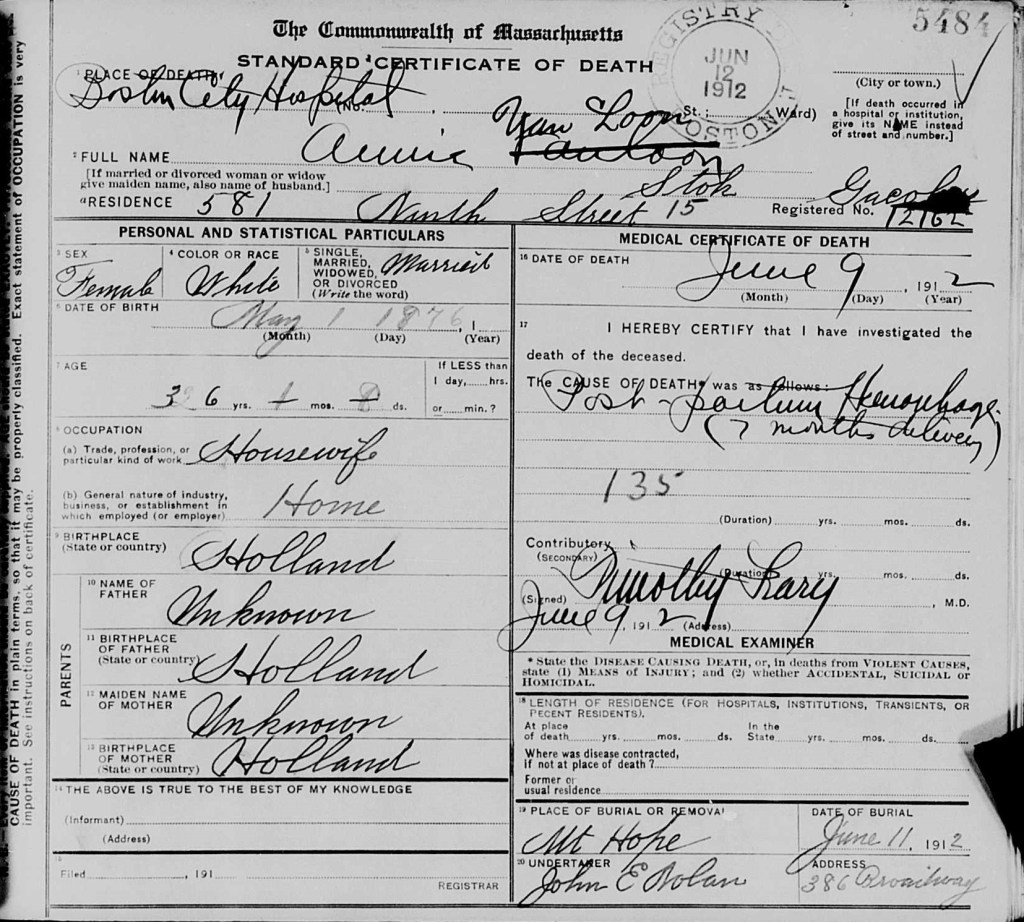 5484
The Commonwealth of Massachusetts
STANDARD CERTIFICATE OF DEATH
REGISTRY BOSTON
JUN
12
1912
1 PLACE OF DEATH
Boston City Hospital
(No. St.; Ward)
(City or town.)
[If death occurred in
a hospital or institution,
give its NAME instead
of street and number.]
Van Loon
2 FULL NAME Annie Vanloon
[If married or divorced woman or widow
give maiden name, also name of husband.]
Stok
RESIDENCE 581 Ninth Street 15
Registered No. 12162
PERSONAL AND STATISTICAL PARTICULARS
3 SEX
Female
4 COLOR OR RACE
White
5 SINGLE,
MARRIED,
WIDOWED,
OR DIVORCED
(Write the word)
Married
6 DATE OF BIRTH
May 1 1876, 1
(Month) (Day) (Year)
7 AGE
36 yrs. 1 mos. 8 ds.
If LESS than
1 day,......hrs.
or......min.?
8 OCCUPATION
(a) Trade, profession, or
particular kind of work Housewife
(b) General nature of industry,
business, or establishment in
which employed (or employer) Home
9 BIRTHPLACE
(State or country) Holland
PARENTS
10 NAME OF
FATHER
Unknown
11 BIRTHPLACE
OF FATHER
(State or country) Holland
12 MAIDEN NAME
OF MOTHER
Unknown
13 BIRTHPLACE
OF MOTHER
(State or country) Holland
14 THE ABOVE IS TRUE TO THE BEST OF MY KNOWLEDGE
(Informant)
(Address)
15
Filed , 191
REGISTRAR
MEDICAL CERTIFICATE OF DEATH
16 DATE OF DEATH
June 9, 1912
(Month) (Day) (Year)
17 I HEREBY CERTIFY that I have investigated the
death of the deceased.
The CAUSE OF DEATH* was as follows:
Post-partum Hemorrhage.
(7 months delivery)
135
(Duration) yrs. mos. ds.
Contributory
(SECONDARY)
(Duration) yrs. mos. ds.
(Signed) Timothy Leary, M.D.
June 9, 1912 (Address)
MEDICAL EXAMINER
* State the DISEASE CAUSING DEATH, or, in deaths from VIOLENT CAUSES,
state (1) MEANS OF INJURY; and (2) whether ACCIDENTAL, SUICIDAL or
HOMICIDAL.
18 LENGTH OF RESIDENCE (FOR HOSPITALS, INSTITUTIONS, TRANSIENTS, OR
RECENT RESIDENTS).
At place
of death yrs. mos. ds.
In the
State yrs. mos. ds.
Where was disease contracted,
if not at place of death?
Former or
usual residence
19 PLACE OF BURIAL OR REMOVAL
Mt Hope
DATE OF BURIAL
June 11, 1912
20 UNDERTAKER
John E Nolan
ADDRESS
386 Broadway
CAUSE OF DEATH in plain terms, so that it may be properly classified. Exact statement of OCCUPATION is very
important. See instructions on back of certificate.